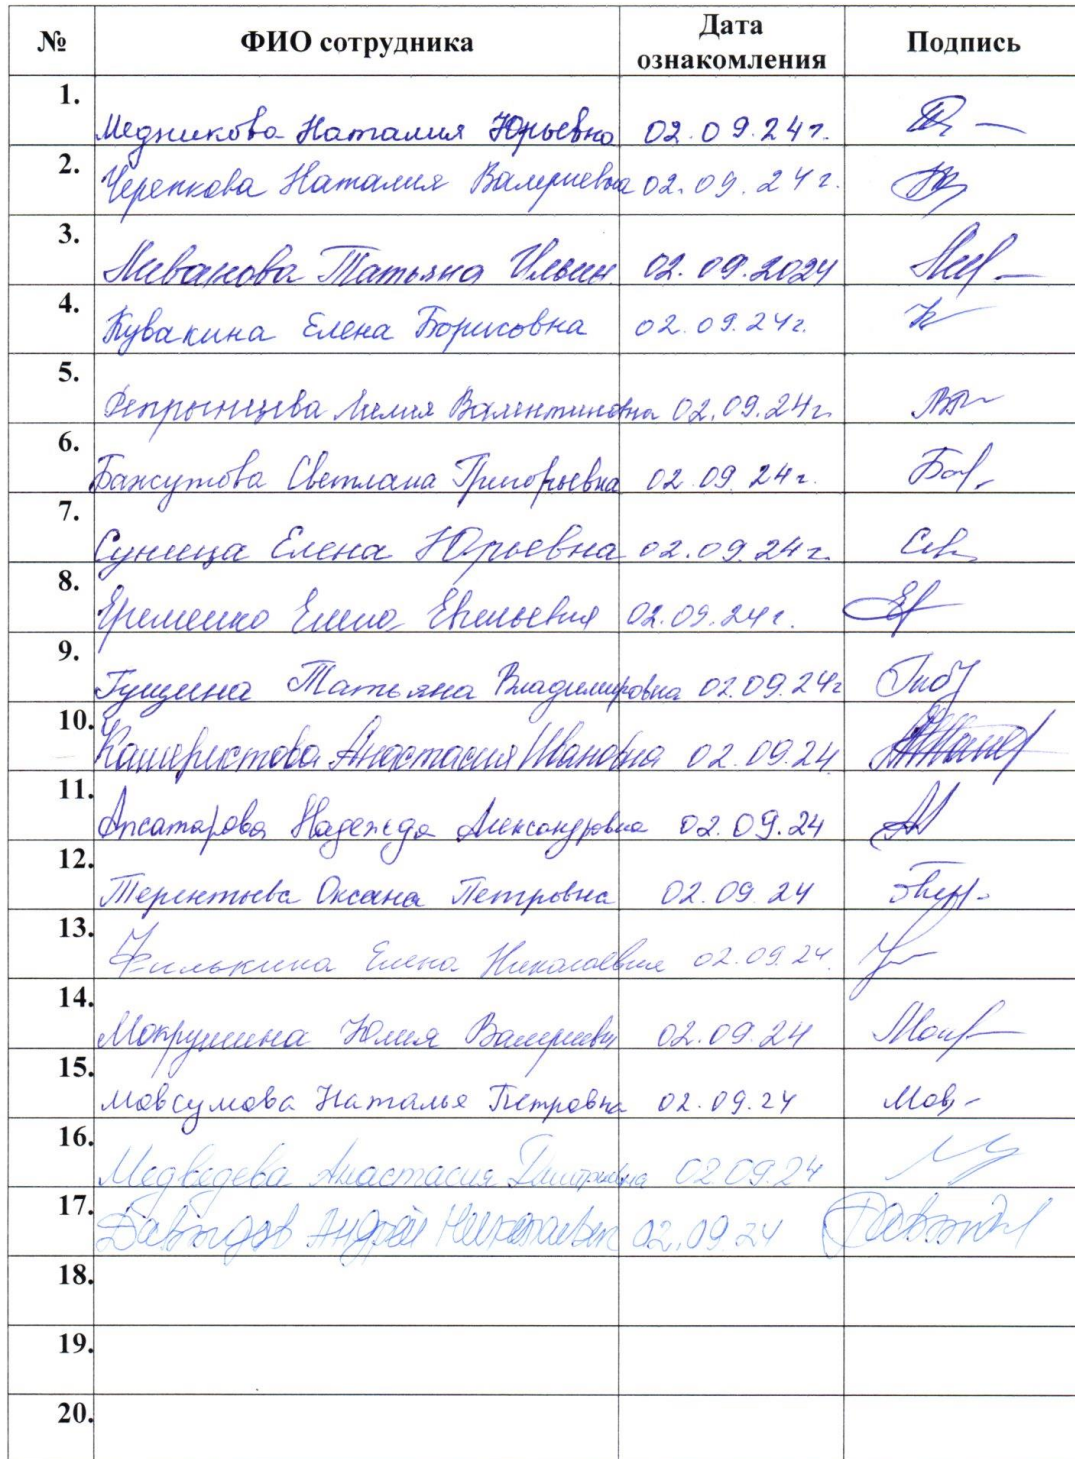 № ФИО сотрудника Дата ознакомления Подпись
1. Медникова Наталия Юрьевна 02.09.24г.
2. Черепкова Наталия Валериевна 02.09.24г.
3. Ливанова Татьяна Ильин. 02.09.2024
4. Кувакина Елена Борисовна 02.09.24г.
5. Репрынцева Лилия Валентиновна 02.09.24г.
6. Бажутова Светлана Григорьевна 02.09.24г.
7. Суница Елена Юрьевна 02.09.24г.
8. Еременко Елена Евгеньевна 02.09.24г.
9. Гущина Татьяна Владимировна 02.09.24г
10. Анастасия Ивановна 02.09.24
11. Апсатарова Надежда Александровна 02.09.24
12. Терентьева Оксана Петровна 02.09.24
13. Филькина Елена Николаевна 02.09.24.
14. Мокрушина Юлия Валериевн 02.09.24
15. Мовсумова Наталья Петровна 02.09.24 Мов
16. Медведева Анастасия Дмитриевна 02.09.24
17. Давыдов Андрей Николаевич 02.09.24 Давыдов
18.
19.
20.